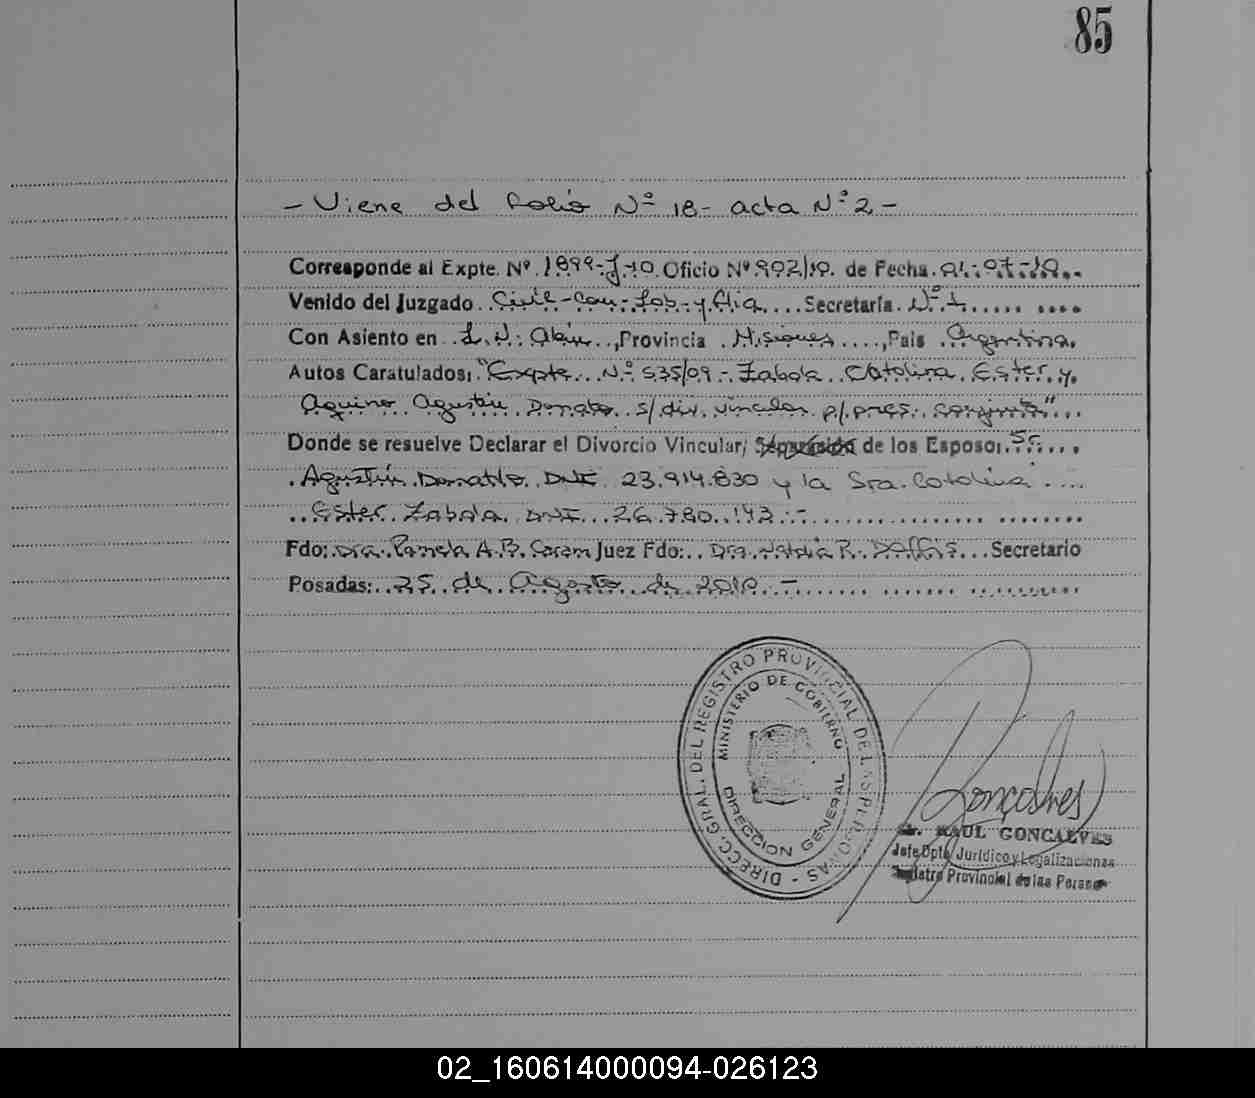 85
- Viene del folio Nº 18 - acta Nº 2 -
Corresponde al Expte. Nº 1899-J-10 Oficio Nº 992/10. de Fecha. 01-07-10
Venido del Juzgado Civil-Com-Lab- y Flia Secretaría Nº 1
Con Asiento en L. N. Alem, Provincia Misiones, Pais Argentina
Autos Caratulados: "Expte. Nº 535/09 - Zabala Catolina Ester y
Aquino Agustín Donato s/ div. vincular p/ pres. conjunta"
Donde se resuelve Declarar el Divorcio Vincular; Separación de los Esposo: Sr.
Agustín Donatto DNI 23.914.830 y la Sra. Catolina
Ester Zabala DNI 26.780.143 -
Fdo: Dra. Pamela A. B. Juez Fdo: Dra. Natalia R. Secretario
Posadas: 25 de Agosto de 2010 -
DIRECC. GRAL. DEL REGISTRO PROVINCIAL DE LAS PERSONAS -
MINISTERIO DE GOBIERNO
DIRECCION GENERAL
Goncalves
Dr. RAUL GONCALVES
Jefe Dpto Jurídico y Legalizaciones
Registro Provincial de las Personas
02_160614000094-026123